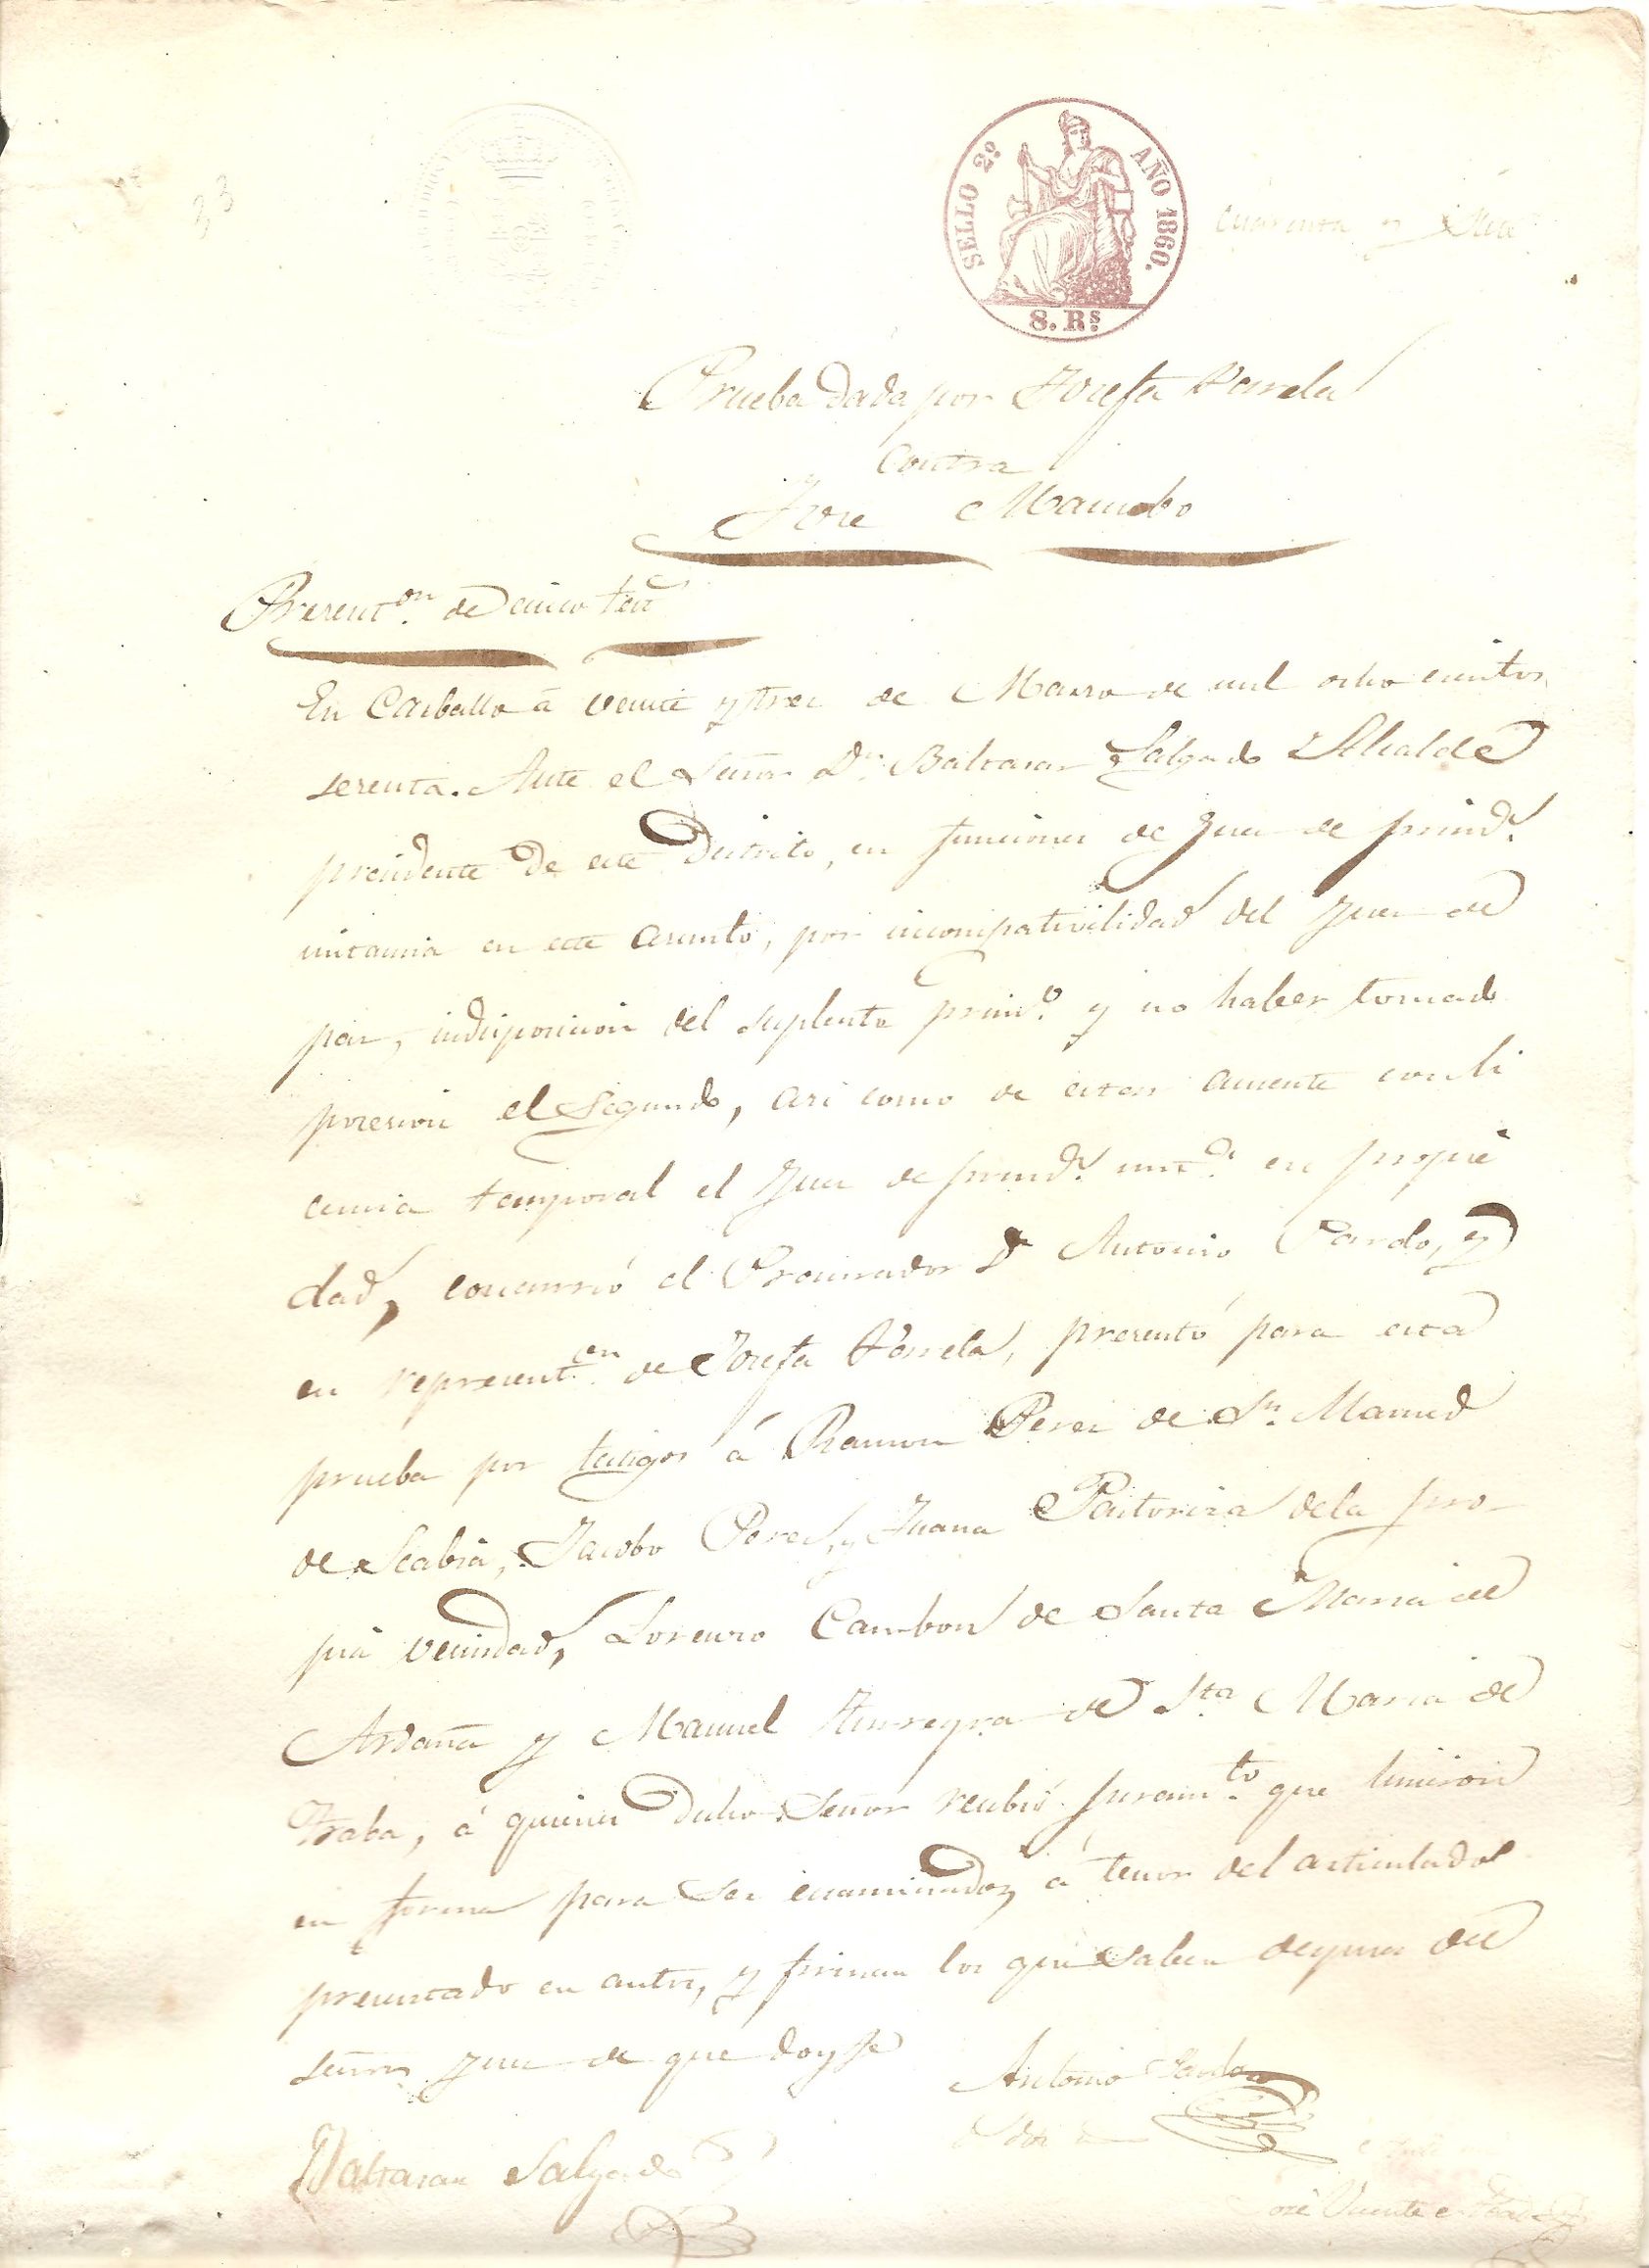 33
SELLO 2º AÑO 1860.
8. Rs.
cuarenta y
Prueba dada por Josefa Varela
Contra
Jose Mancebo
Presenton. de cinco tesº
En Carballo á veinte y tres de Marzo de mil ocho cientos
sesenta. Ante el Señor Dn. Baltasar Salgado Alcalde
presidente de este Distrito, en funciones de Juez de primª.
instancia en este asunto, por incompativilidad del Juez de
paz, indisposicion del suplente primº. y no haber tomado
posesion el Segundo, asi como de estar ausente con li
cencia temporal el Juez de primª. instª. en propie
dad, concurrió el Procurador Dn Antonio Pardo, y
en representon. de Josefa Varela, presentó para esta
prueba por testigos á Ramon Perez de Sn. Mamed
de Seabia, Jacobo Perez, y Juana Pastoriza de la pro-
pia vecindad, Lorenzo Cambon de Santa Maria de
Ardaña y Manuel de Sta Maria de
Traba, á quienes dicho Señor recibió juramto. que hicieron
en forma para ser examinados á tenor del articulado
presentado en autos, y firman los que saben despues del
señor Juez de que doy fe
Antonio Pardo
Baltasar Salgado
José Vicente